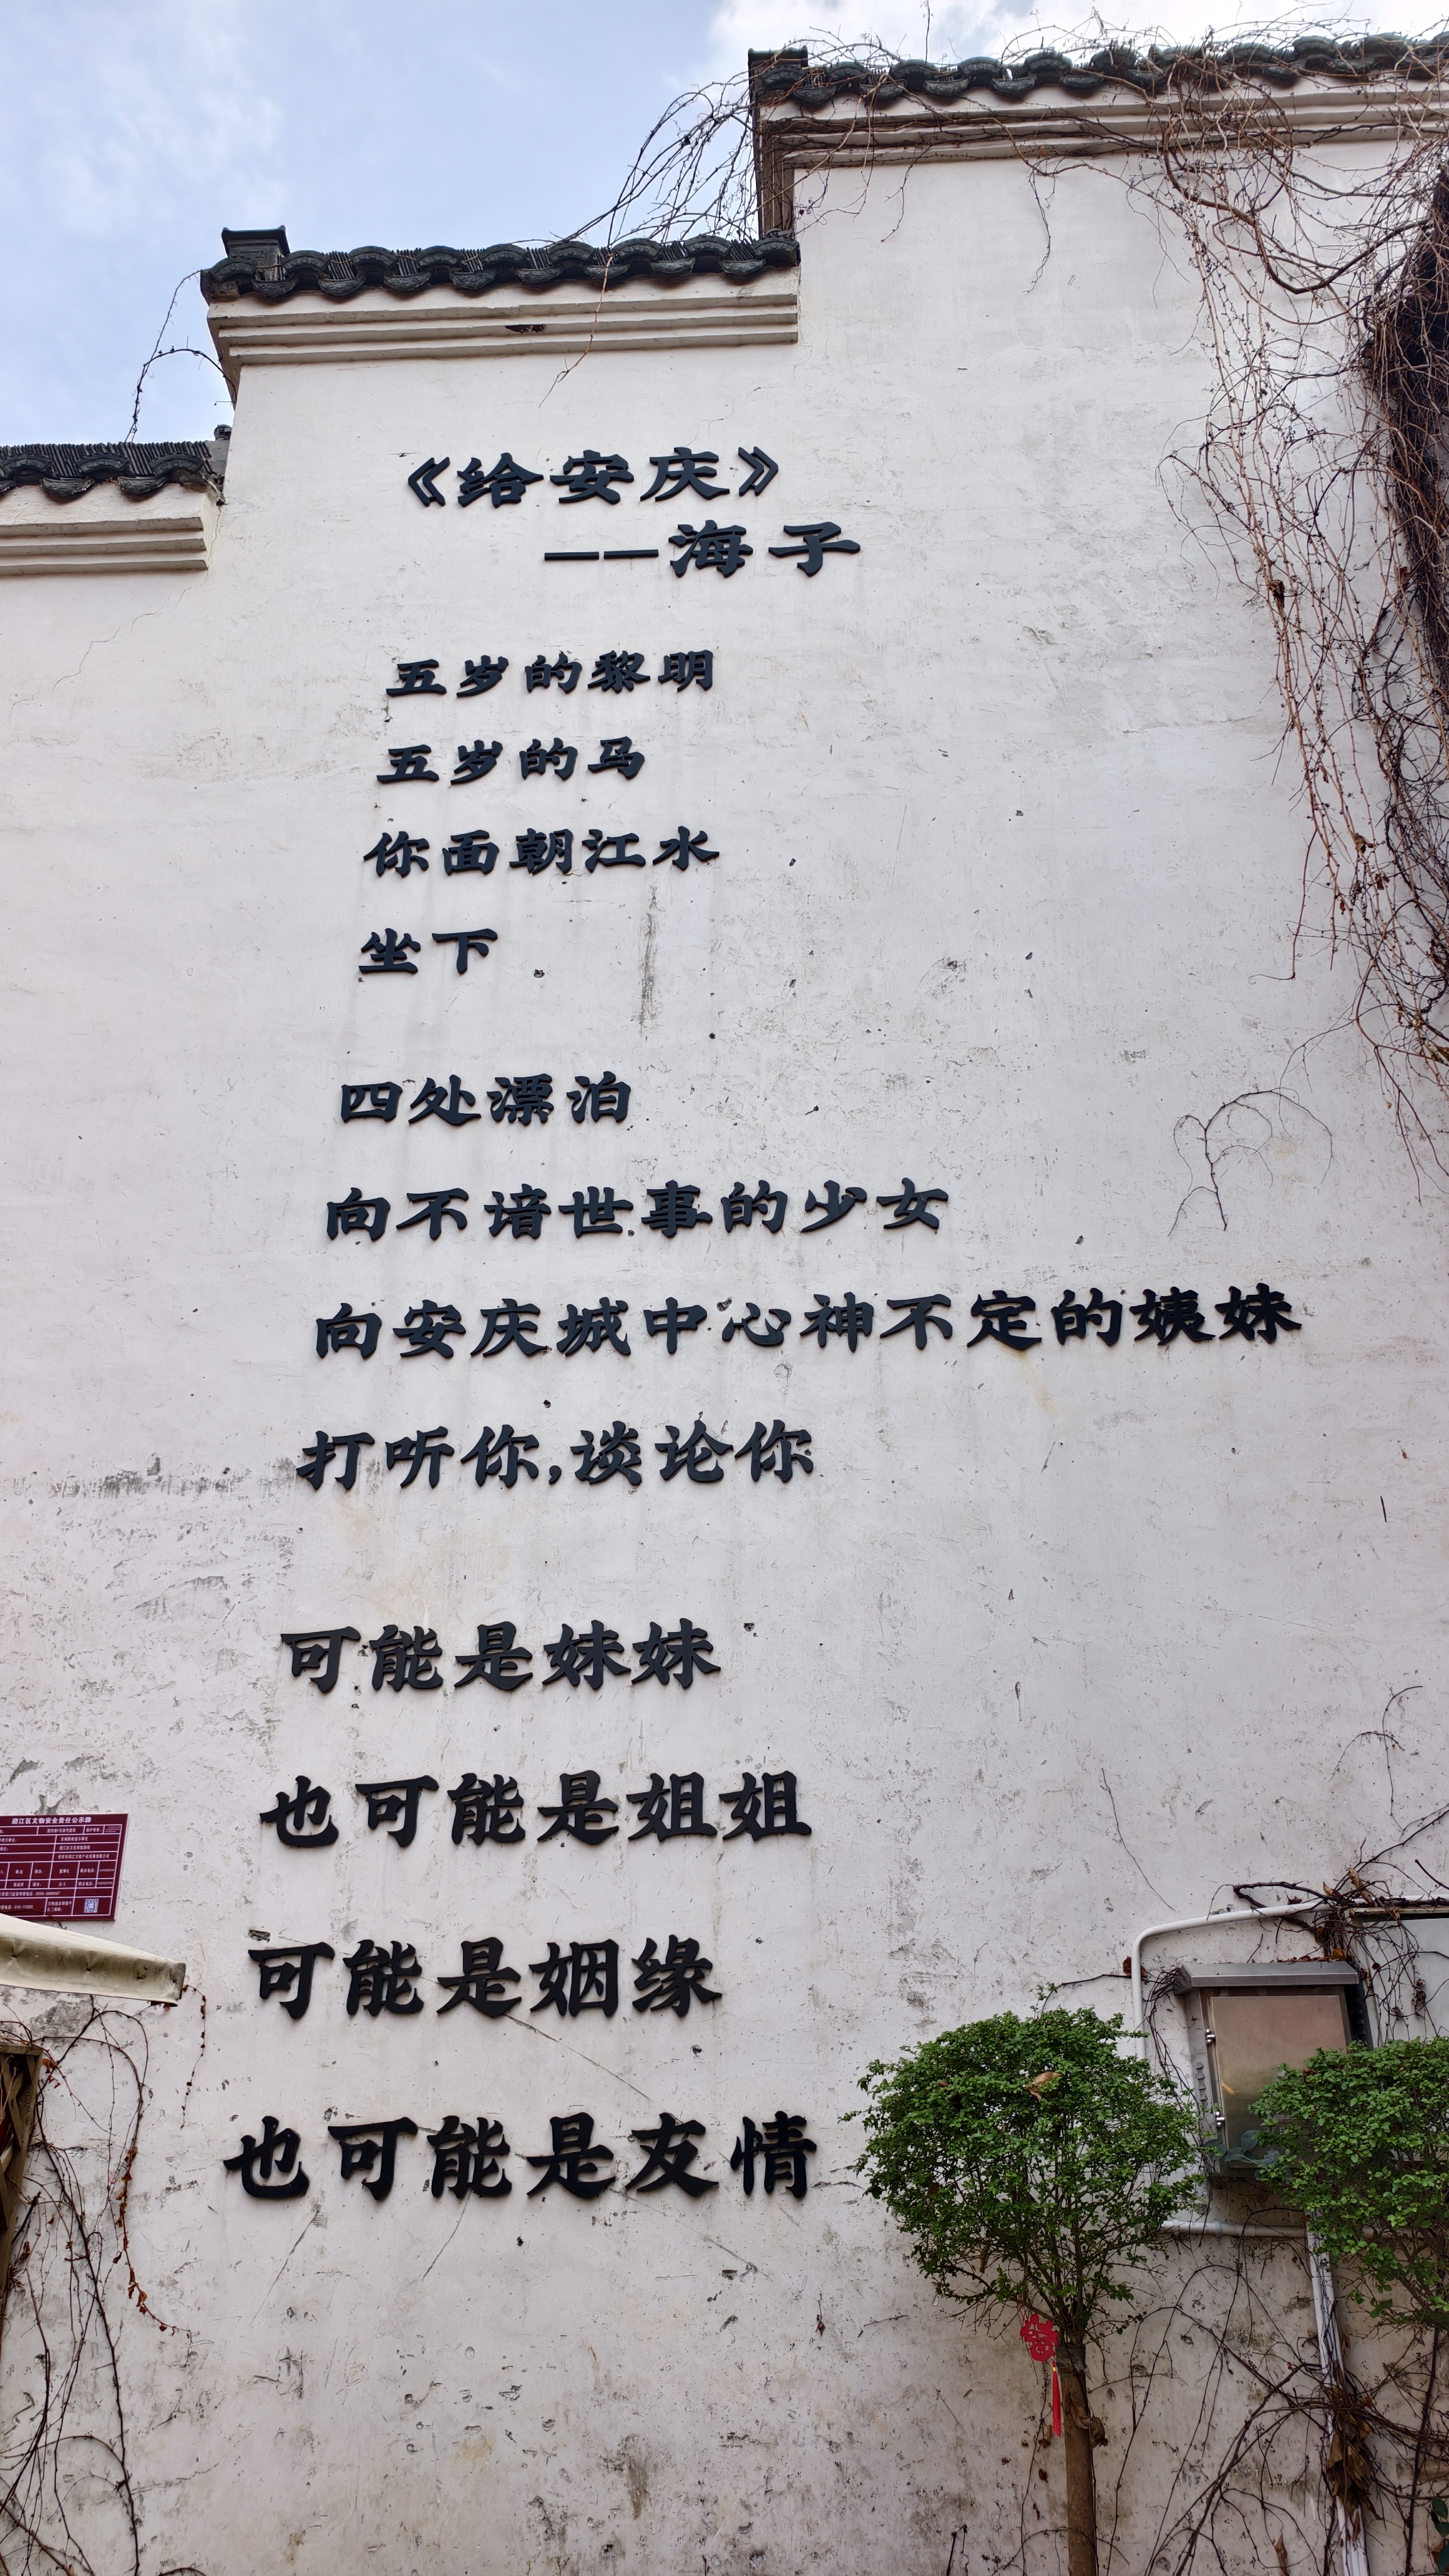 《给安庆》
——海子
五岁的黎明
五岁的马
你面朝江水
坐下
四处漂泊
向不谙世事的少女
向安庆城中心神不定的姨妹
打听你,谈论你
可能是妹妹
也可能是姐姐
可能是姻缘
也可能是友情
迎江区文物安全责任公示牌